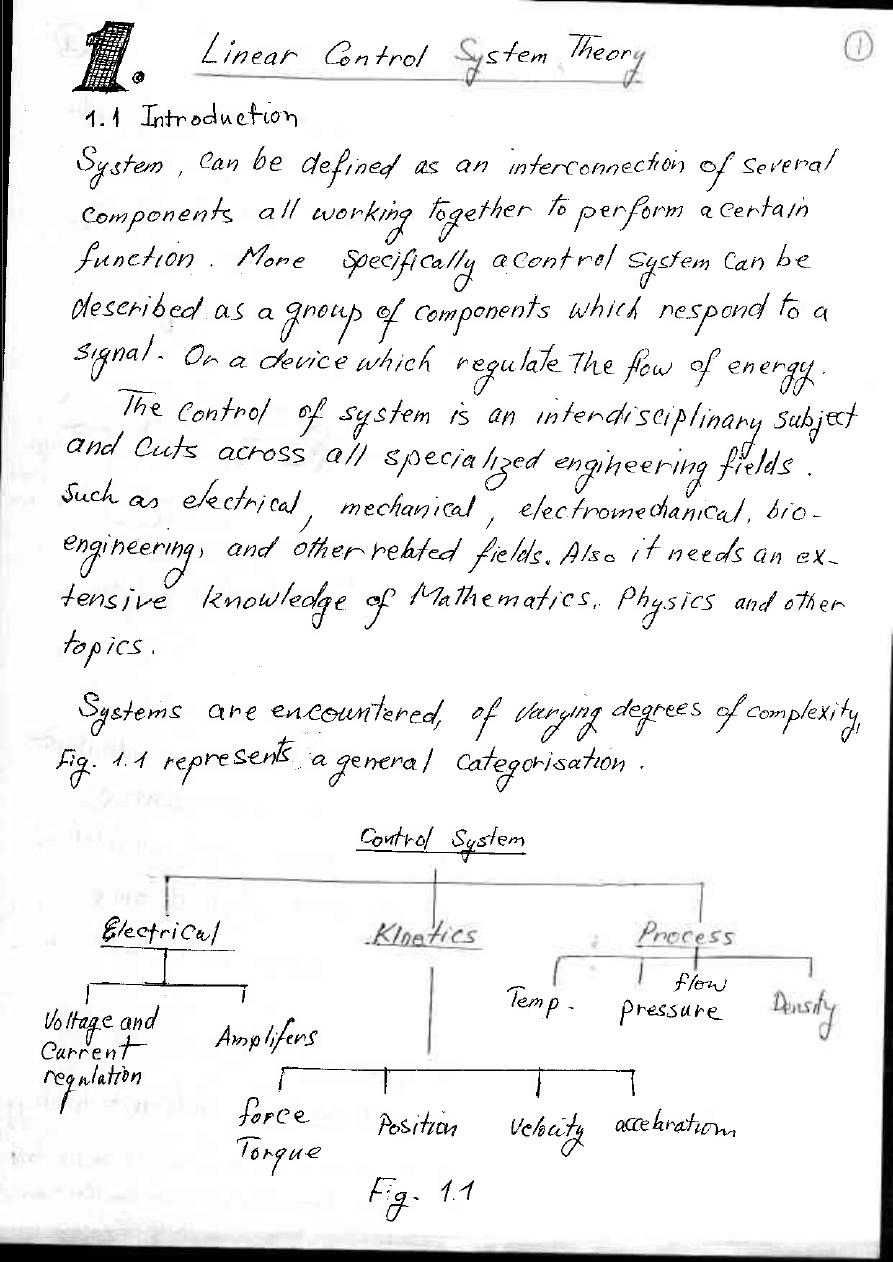 1. Linear Control System Theory
1
1.1 Introduction
System, Can be defined as an interconnection of several
components all working together to perform a certain
function. More Specifically a control system Can be
described as a group of components which respond to a
signal. Or a device which regulate The flow of energy.
The Control of system is an interdisciplinary subject
and Cuts across all specialized engineering fields.
Such as electrical, mechanical, electromechanical, bio-
engineering, and other related fields. Also it needs an ex-
tensive knowledge of Mathematics, Physics and other
topics.
Systems are encountered, of varying degrees of complexity,
Fig. 1.1 represents a general Categorisation.
Control System
Electrical Kinetics Process
Temp. pressure flow Density
Voltage and
Current
regulation
Amplifers
force
Torque
Position Velocity acceleration
Fig. 1.1